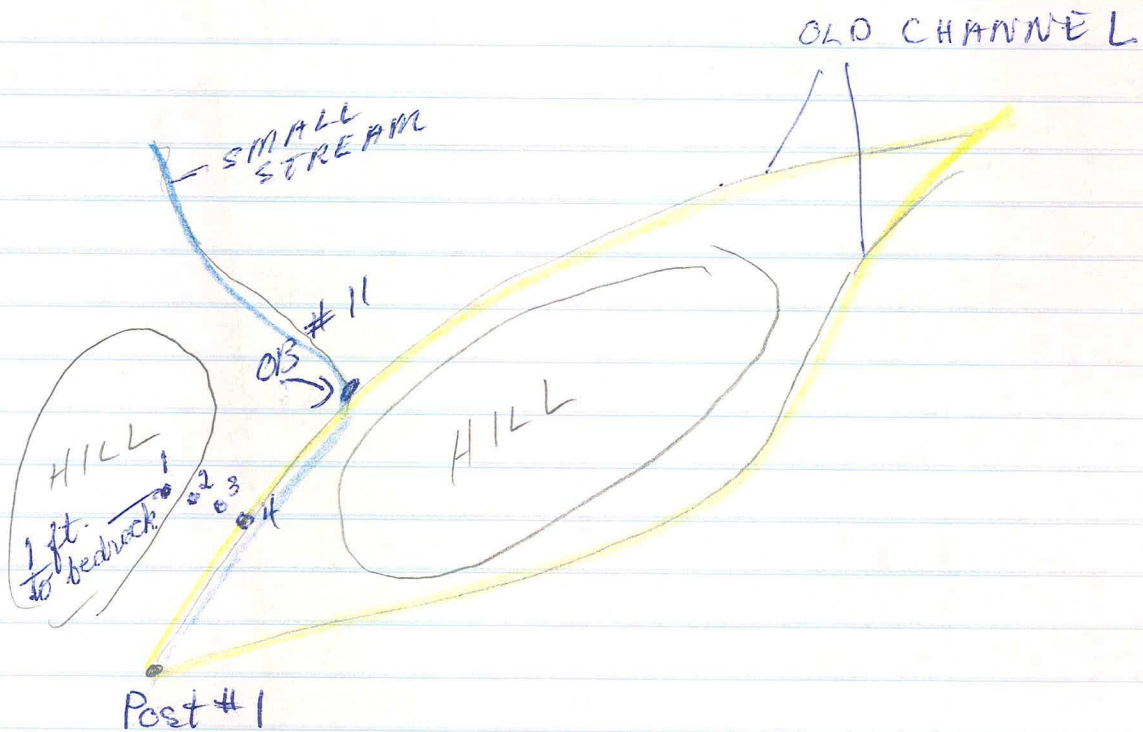 OLD CHANNEL
SMALL
STREAM
# 11
OB
HILL
HILL
1
2
3
4
1 ft.
to bedrock
Post #1